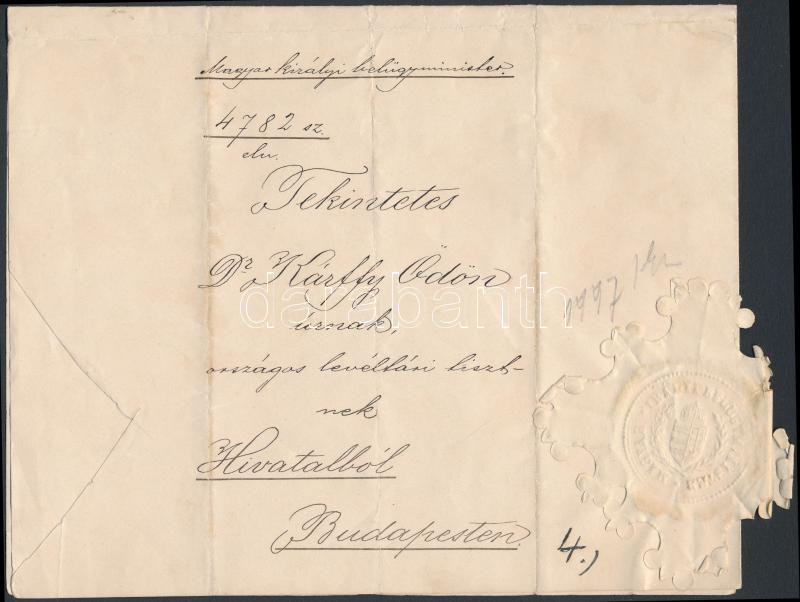 Magyar királyi belügyminister.
4782 sz.
eln.
Tekintetes
Dr Kárffy Ödön
úrnak,
országos levéltári tiszt-
nek
Hivatalból
Budapesten.
darabanth
4.)